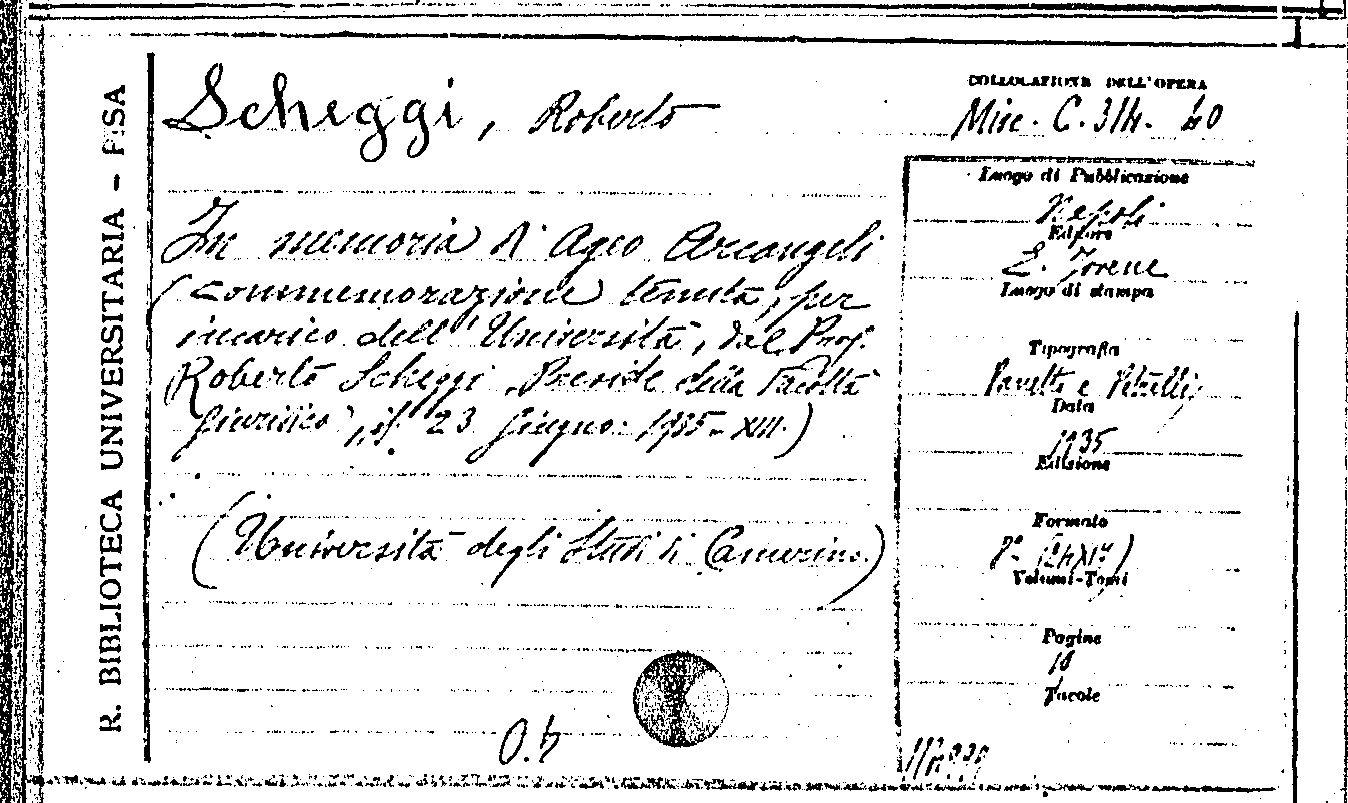 R. BIBLIOTECA UNIVERSITARIA - PISA
Scheggi, Roberto
In memoria di Ageo Arcangeli
(commemorazione tenuta, per
incarico dell'Università, dal Prof.
Roberto Scheggi Preside della Facoltà
Giuridica, il 23 Giugno 1935-XIII.)
(Università degli Studi di Camerino.)
COLLOCAZIONE DELL'OPERA
Misc. C. 314. 40
Luogo di Pubblicazione
Napoli
Editore
E. Jovene
Luogo di stampa
Tipografia
Data
1935
Edizione
Formato
8°
Volumi-Tomi
Pagine
Tavole